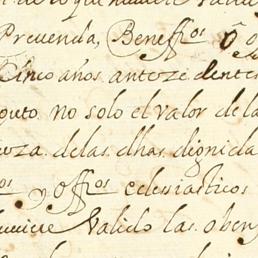 lo que huviere Valid
Prevenda, Beneff.os ô o
Cinco años antezedentes
puto no solo el valor dela
teza. delas dhas dignida
os y off.os eclesiasticos
huviere Valido las oben